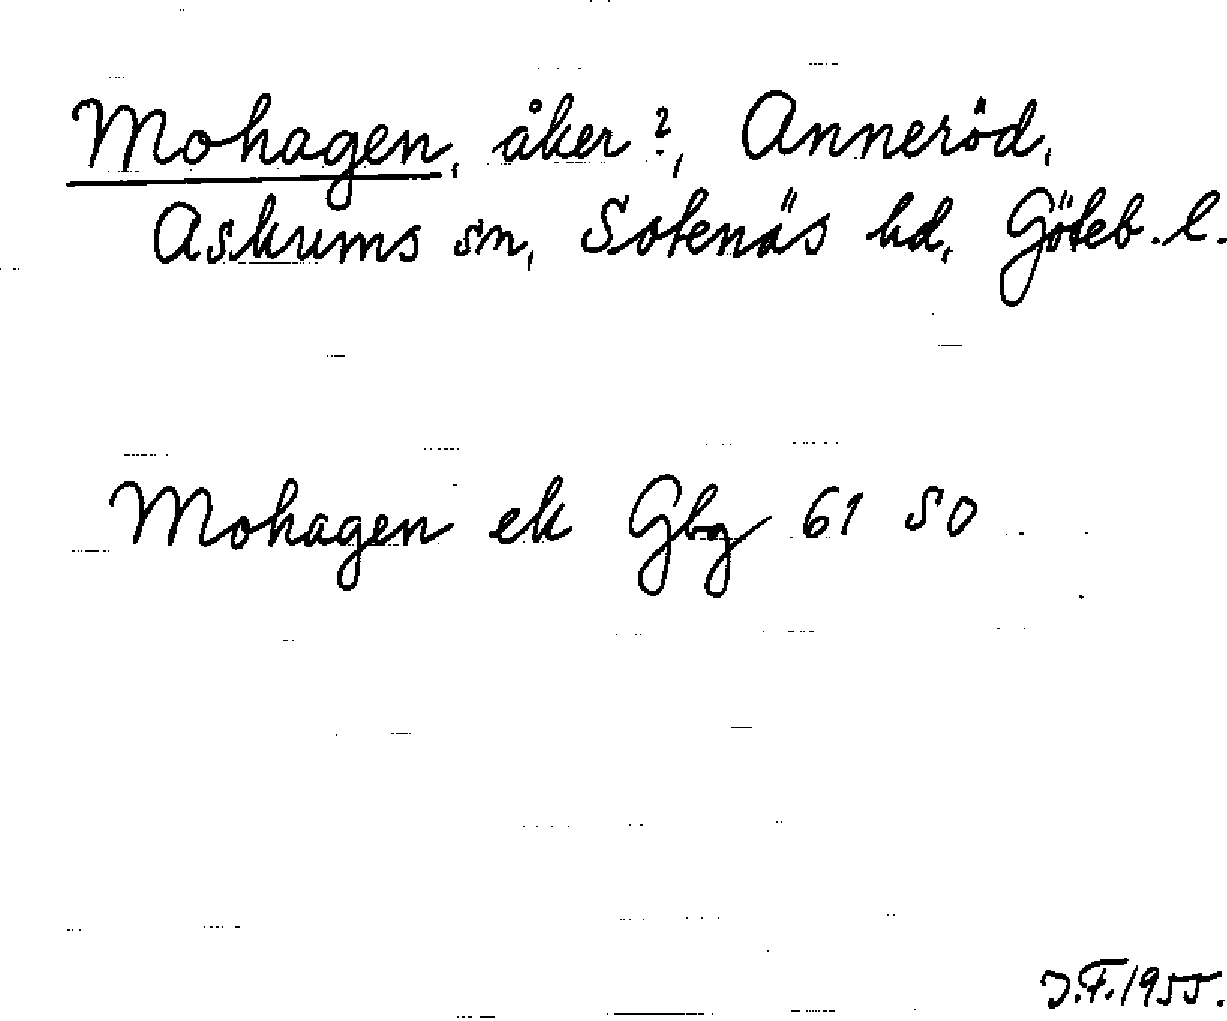 Mohagen, åker?, Anneröd,
Askums sn, Sotenäs hd, Göteb. l.
Mohagen ek Gbg 61 SO
J.F. 1955.